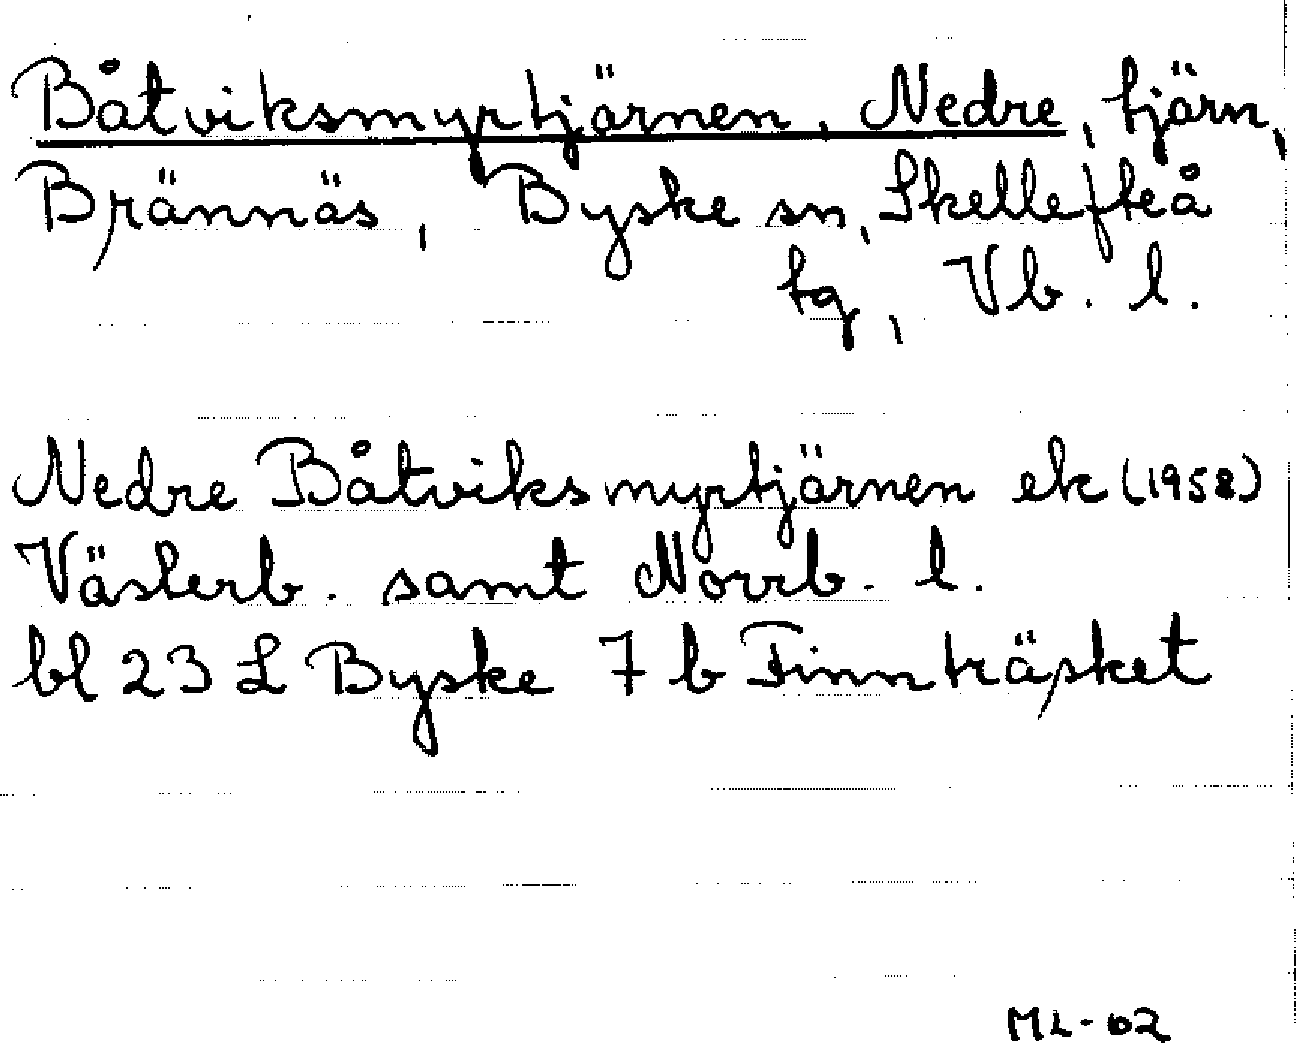 Båtviksmyrtjärnen, Nedre, tjärn,
Brännäs, Byske sn, Skellefteå
tg, Vb. l.
Nedre Båtviksmyrtjärnen ek (1958)
Västerb. samt Norrb. l.
bl 23 L Byske 7 b Finnträsket
ML-62